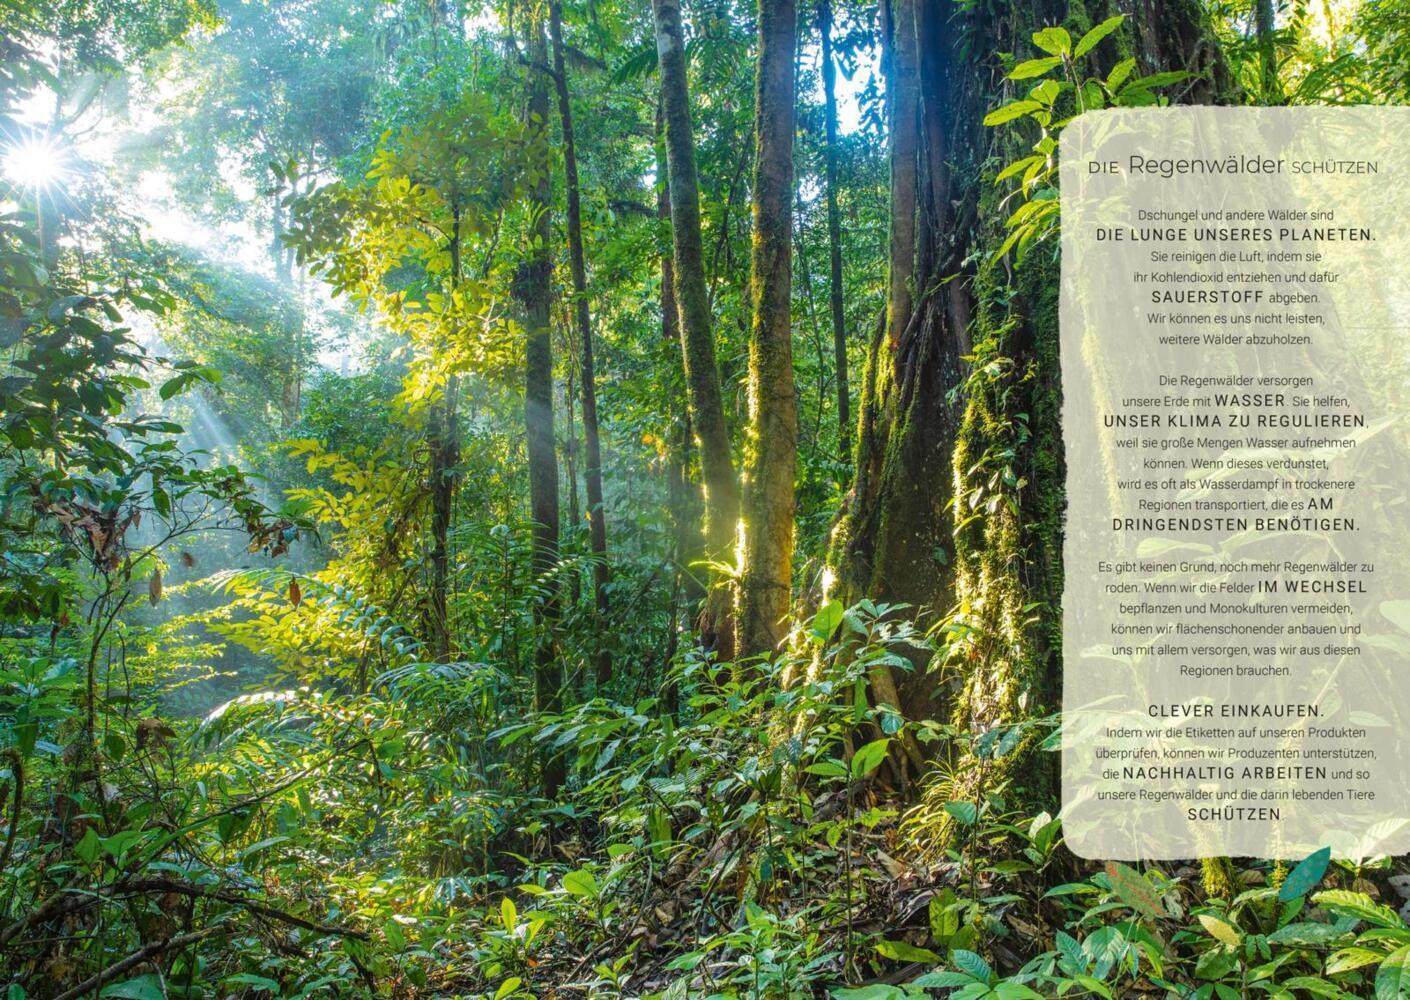 DIE Regenwälder SCHÜTZEN
Dschungel und andere Wälder sind
DIE LUNGE UNSERES PLANETEN.
Sie reinigen die Luft, indem sie
ihr Kohlendioxid entziehen und dafür
SAUERSTOFF abgeben.
Wir können es uns nicht leisten,
weitere Wälder abzuholzen.
Die Regenwälder versorgen
unsere Erde mit WASSER. Sie helfen,
UNSER KLIMA ZU REGULIEREN,
weil sie große Mengen Wasser aufnehmen
können. Wenn dieses verdunstet,
wird es oft als Wasserdampf in trockenere
Regionen transportiert, die es AM
DRINGENDSTEN BENÖTIGEN.
Es gibt keinen Grund, noch mehr Regenwälder zu
roden. Wenn wir die Felder IM WECHSEL
bepflanzen und Monokulturen vermeiden,
können wir flächenschonender anbauen und
uns mit allem versorgen, was wir aus diesen
Regionen brauchen.
CLEVER EINKAUFEN.
Indem wir die Etiketten auf unseren Produkten
überprüfen, können wir Produzenten unterstützen,
die NACHHALTIG ARBEITEN und so
unsere Regenwälder und die darin lebenden Tiere
SCHÜTZEN.